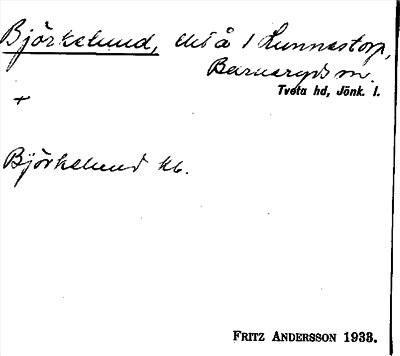 Björkelund, del å 1 Lunnastorp,
Barnaryds sn.
Tveta hd, Jönk. l.
+
Björkelund kb.
FRITZ ANDERSSON 1933.